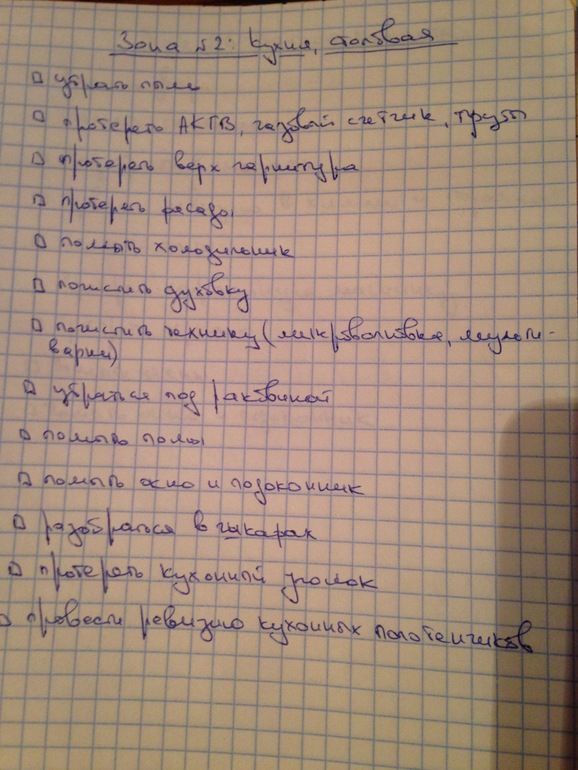 Зона №2: Кухня, столовая
убрать пыль
протереть АКГВ, газовый счетчик, трубы
протереть верх гарнитура
протереть фасады
помыть холодильник
почистить духовку
почистить технику (микроволновка, мульти-
варки)
убраться под раковиной
помыть полы
помыть окно и подоконник
разобраться в шкафах
протереть кухонный уголок
провести ревизию кухонных полотенчиков